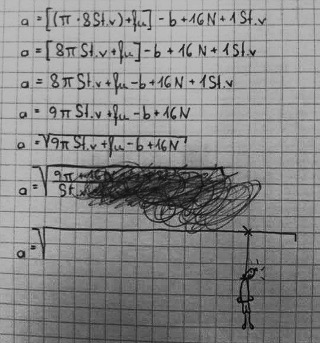 a = [(π · 8St.v) + fμ] - b + 16N + 1St.v
a = [8πSt.v + fμ] - b + 16N + 1St.v
a = 8πSt.v + fμ - b + 16N + 1St.v
a = 9πSt.v + fμ - b + 16N
a = √9πSt.v + fμ - b + 16N
a = √
a = √